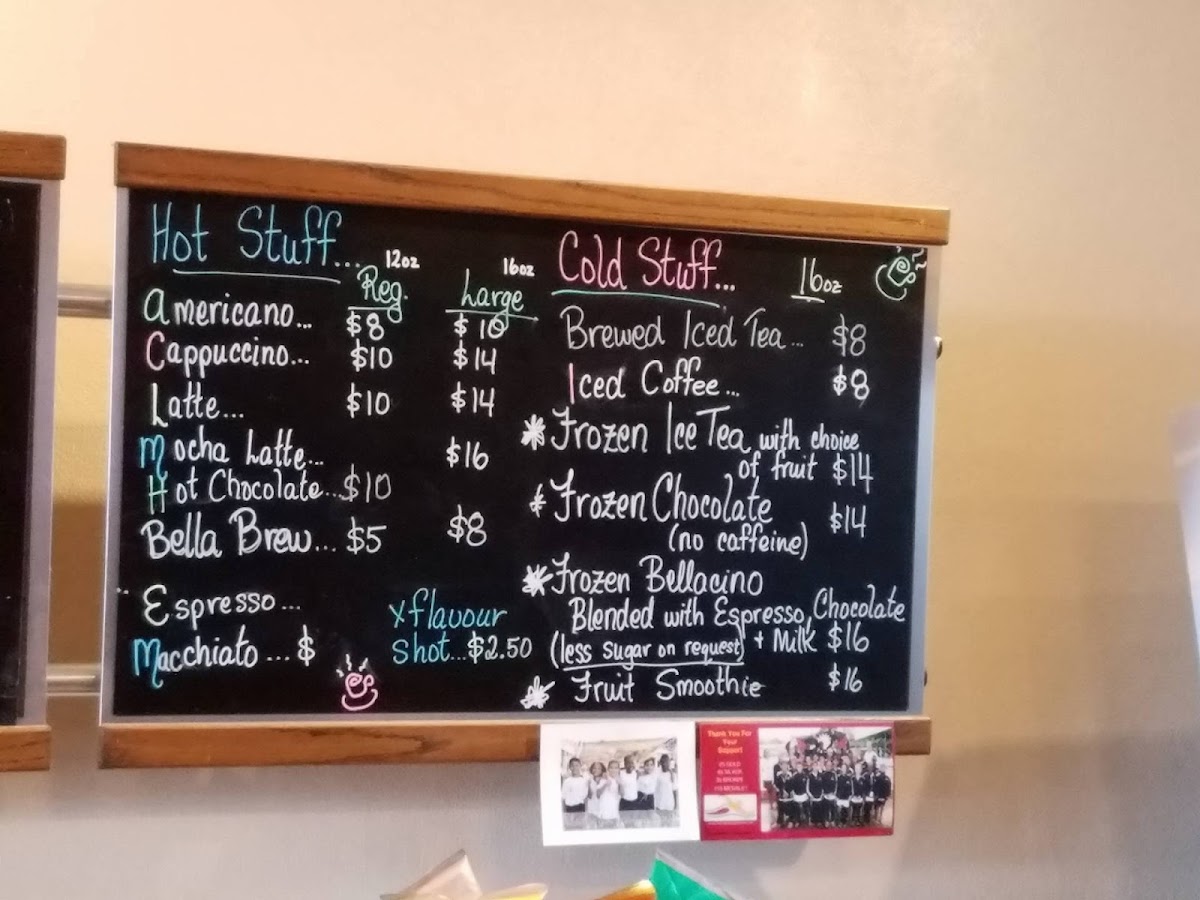 Hot Stuff...
12oz 16oz
Reg. Large
Americano... $8 $10
Cappuccino... $10 $14
Latte... $10 $14
Mocha Latte... $16
Hot Chocolate... $10
Bella Brew... $5 $8
Espresso...
Macchiato... $
x flavour
shot...$2.50
Cold Stuff... 16oz
Brewed Iced Tea... $8
Iced Coffee... $8
Frozen Ice Tea with choice
of fruit $14
Frozen Chocolate $14
(no caffeine)
Frozen Bellacino
Blended with Espresso, Chocolate
(less sugar on request) + Milk $16
Fruit Smoothie $16
Thank You For
Your
Support